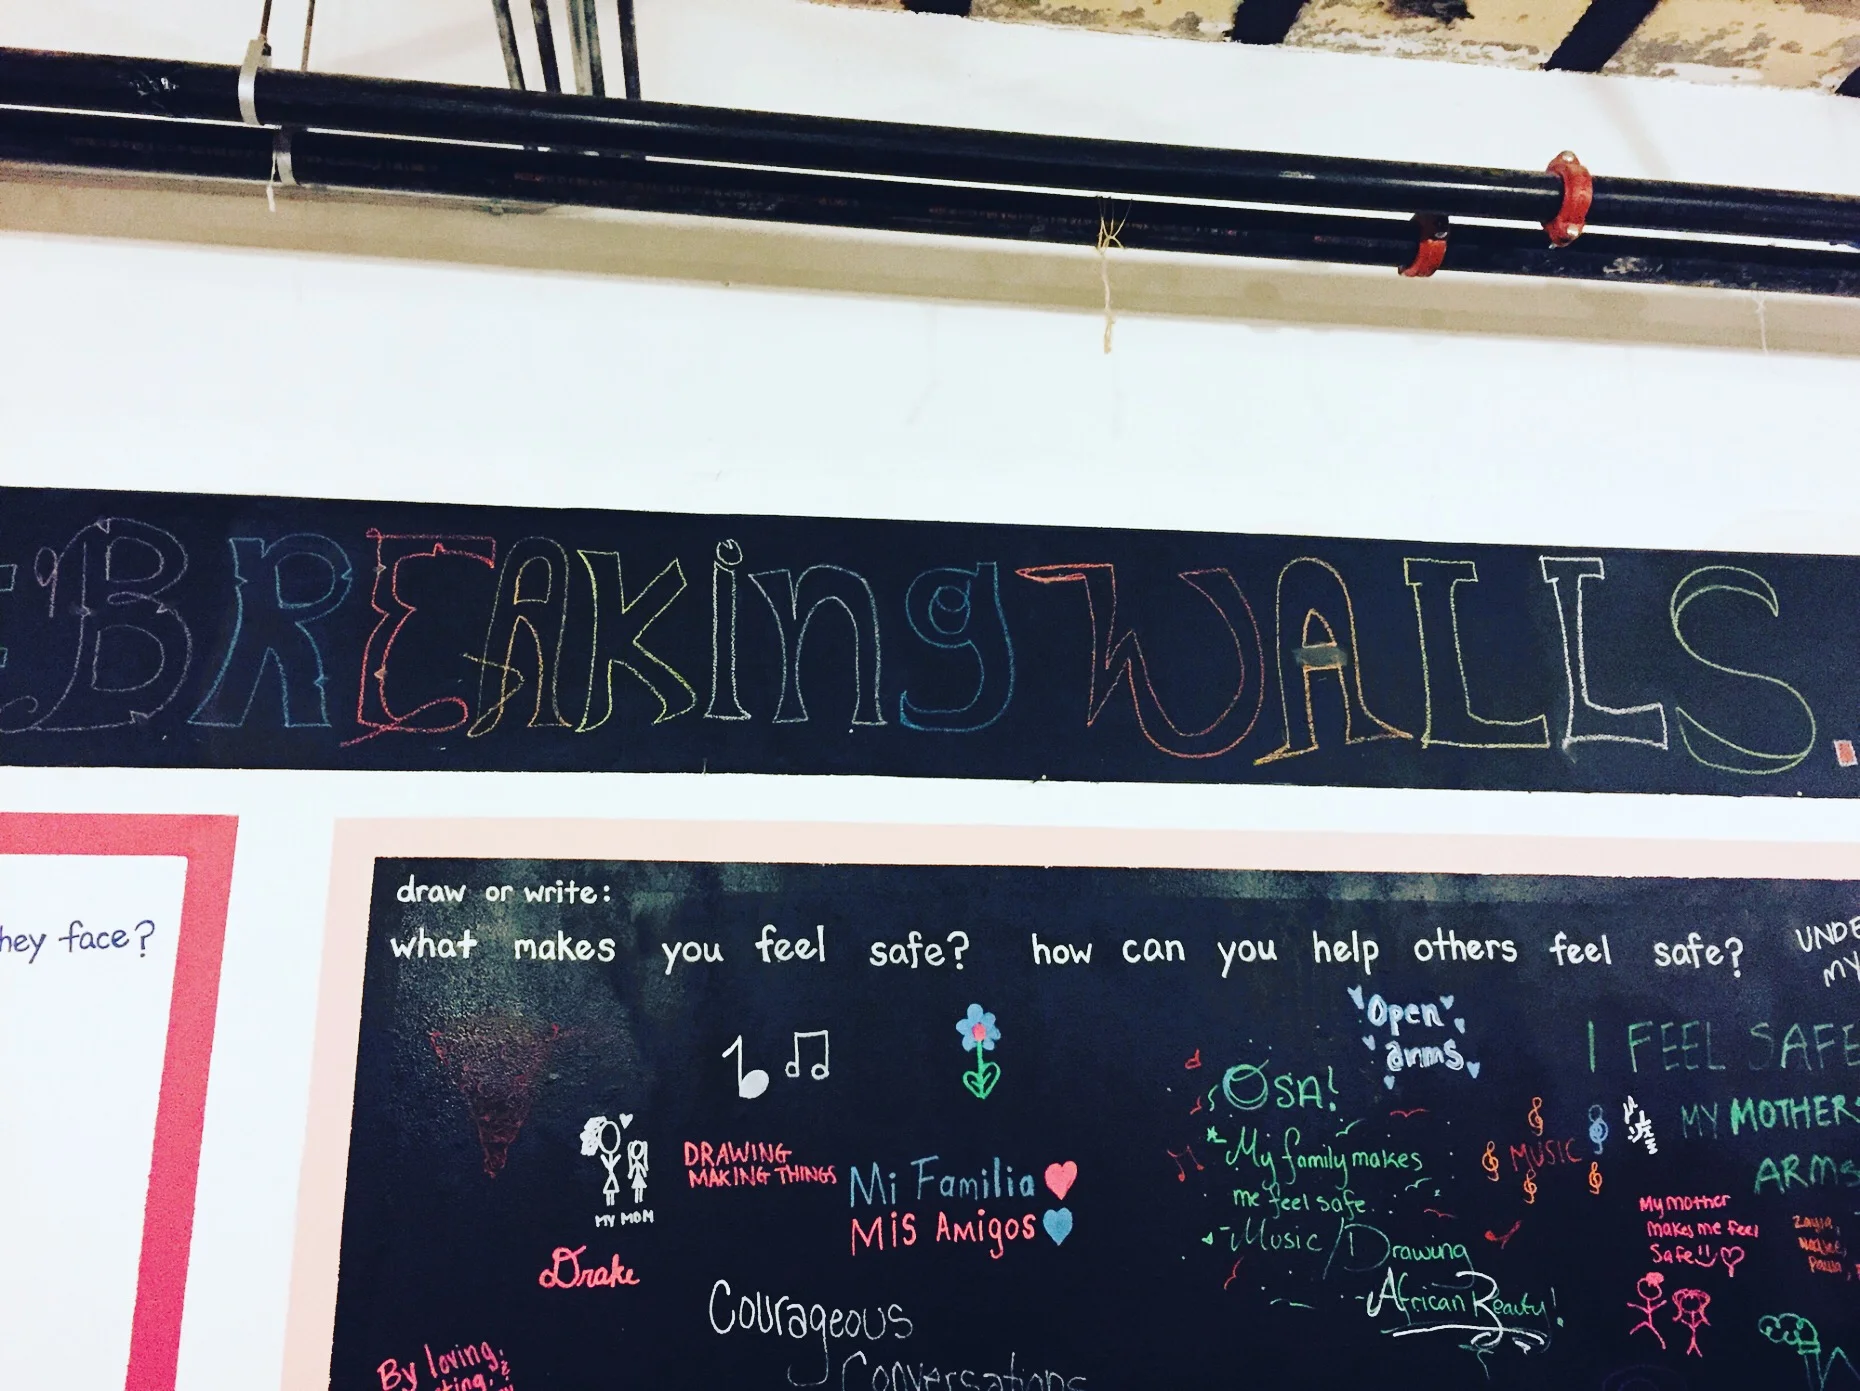 BREAKing WALLS.
they face?
draw or write:
what makes you feel safe? how can you help others feel safe?
MY
Open
arms
OSA!
I FEEL SAFE
MY MOTHER
ARMS
My family makes
me feel safe.
Music/Drawing
African Beauty!
MUSIC
DRAWING
MAKING THINGS
Mi Familia
MiS Amigos
MY MOM
Drake
My mother
makes me feel
Safe!!
Courageous
Conversations
By loving,